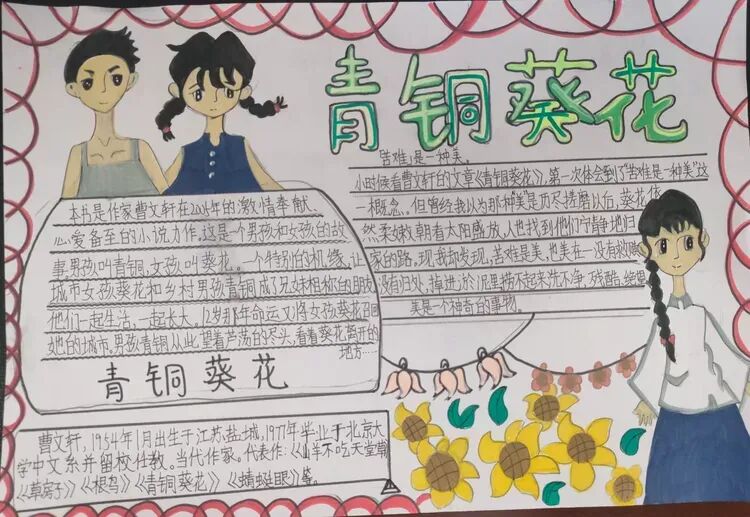 青铜葵花
本书是作家曹文轩在2005年的激情奉献
心爱备至的小说力作。这是个男孩和女孩的故
事。男孩叫青铜,女孩叫葵花。一个特别的机缘,让
城市女孩葵花和乡村男孩青铜成了兄妹相称的朋友
他们一起生活,一起长大。12岁那年命运又将女孩葵花召回
她的城市。男孩青铜从此望着芦荡的尽头,看着葵花离开的
地方……
青铜葵花
苦难,是一种美。
小时候看曹文轩的文章《青铜葵花》,第一次体会到了“苦难是一种美”这
一概念。但曾经我以为那种“美”是历尽搓磨以后,葵花依
然柔嫩,朝着太阳盛放,人也找到他们宁静地归
家的路。现我却发现,苦难是美,也美在一没有故
没有归处,掉进淤泥里捞不起来洗不净,残酷、绝望
美是个神奇的事物。
曹文轩,1954年1月出生于江苏盐城,1977年毕业于北京大
学中文系并留校任教。当代作家。代表作:《山羊不吃天堂草》
《草房子》《根鸟》《青铜葵花》《蜻蜓眼》等。